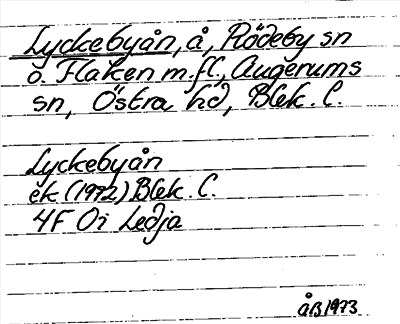 Lyckebyån, å, Rödeby sn
o. Flaken m.fl., Augerums
sn, Östra hd, Blek. l.
Lyckebyån
ek (1972) Blek. l.
4F 0i Ledja
ÅB 1973